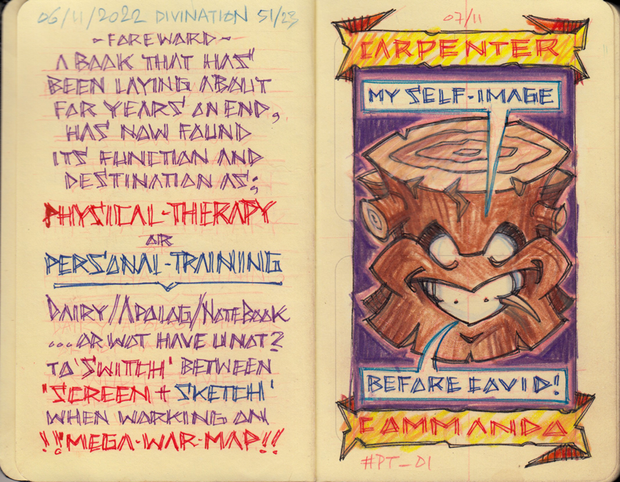 06/11/2022 DIVINATION 51/23
~FOREWARD~
A BOOK THAT HAS
BEEN LAYING ABOUT
FOR YEARS ON END,
HAS NOW FOUND
ITS FUNCTION AND
DESTINATION AS;
PHYSICAL-THERAPY
OR
PERSONAL-TRAINING
DAIRY/APOLAG/NOTEBOOK
...OR WOT HAVE U NOT?
TO 'SWITCH' BETWEEN
'SCREEN + SKETCH'
WHEN WORKING ON
!!MEGA-WAR-MAP!!
07/11
CARPENTER
MY SELF-IMAGE
BEFORE COVID!
COMMANDO
#PT_01